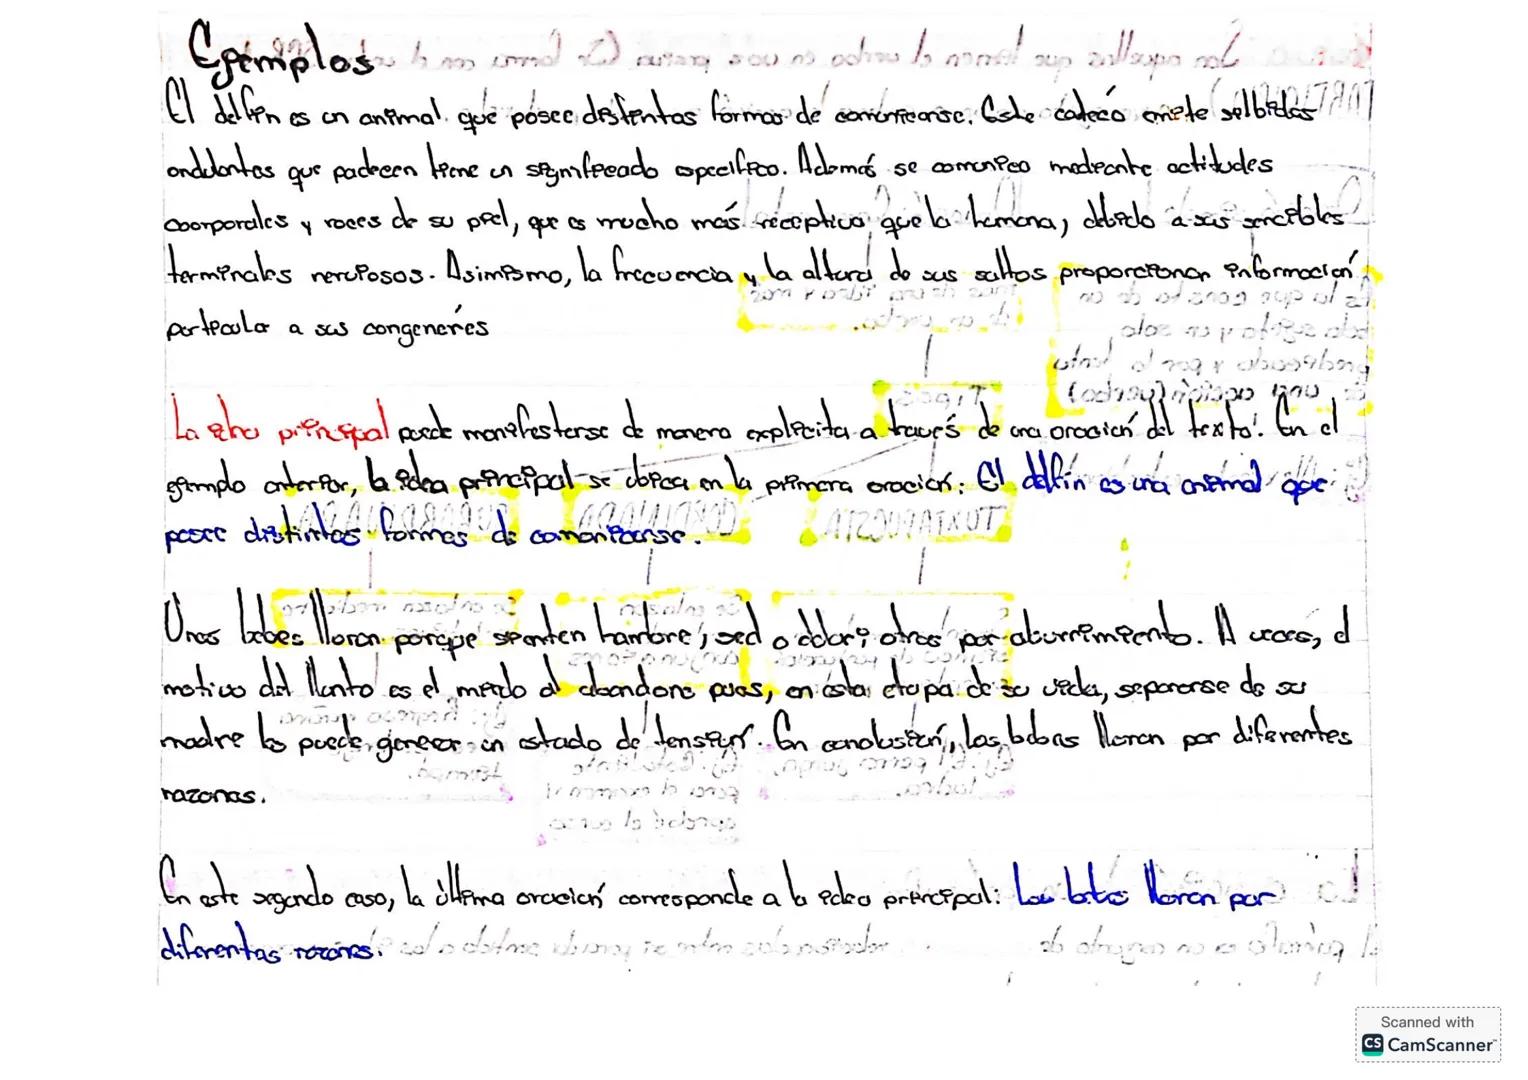 Ejemplos
El delfín es un animal que posee distintas formas de comunicarse. Este cataceó emite selbidos
ondulantes que padecen tiene un significado especifico. Además se comunico mediante actitudes
coorporales y roces de su piel, que es mucho más receptiva que la humana, debido a sus sencibles
terminales nerviosos. Asimismo, la frecuencia y la altura de sus saltos proporcionan información
particular a sus congenerés
La idea principal puede manifestarse de manera explicita a través de una oración del texto. En el
ejemplo anterior, la idea principal se ubica en la primera oración: El delfín es una animal que
posee distintas formas de comunicarse.
Unos bebes lloran porque sienten hambre, sed o dolor; otros por aburrimiento. A veces, el
motivo del llanto es el miedo al abandono pues, en esta etapa de su vida, separarse de su
madre les puede generar un estado de tensión. En conclusión, los bebes lloran por diferentes
razones.
En este segundo caso, la última oración corresponde a la idea principal: Los bebes lloran por
diferentes razones.
Scanned with
CS CamScanner